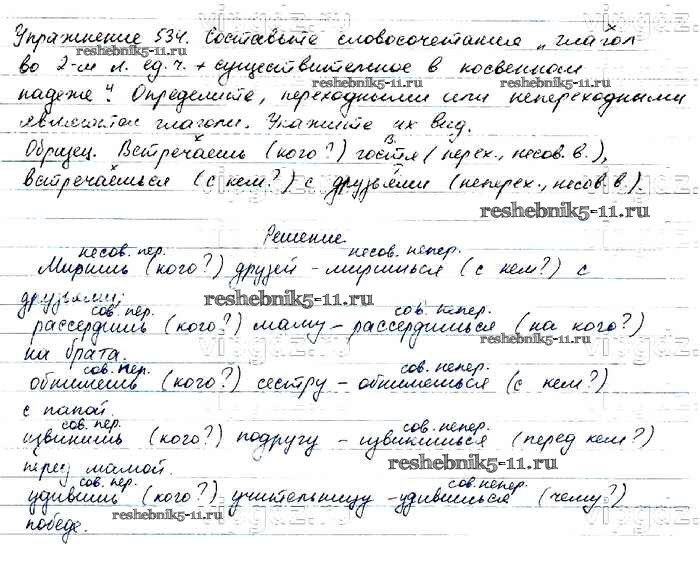 Упражнение 534. Составьте словосочетания „глагол
reshebnik5-11.ru
во 2-м л. ед. ч. + существительное в косвенном
падеже". Определите, переходными или непереходными
являются глаголы. Укажите их вид.
Образец. Встречаешь (кого?) гостя (перех., несов. в.),
встречаешься (с кем?) с друзьями (неперех., несов. в.).
reshebnik5-11.ru
Решение
несов. пер. несов. непер.
Миришь (кого?) друзей – миришься (с кем?) с
друзьями;
reshebnik5-11.ru
сов. пер. сов. непер.
рассердишь (кого?) маму – рассердишься (на кого?)
на брата.
сов. пер. сов. непер.
обнимешь (кого?) сестру – обнимешься (с кем?)
с папой.
сов. пер. сов. непер.
извинишь (кого?) подругу – извинишься (перед кем?)
перед мамой.
reshebnik5-11.ru
сов. пер. сов. непер.
удивишь (кого?) учительницу – удивишься (чему?)
победе.
reshebnik5-11.ru